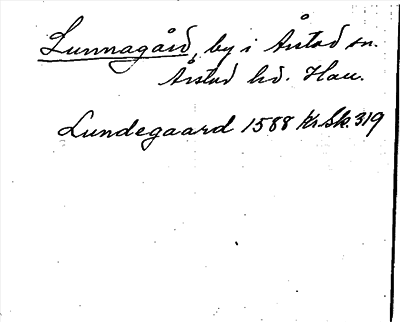 Lunnagård, by i Årstad sn.
Årstad hd. Hall.
Lundegaard 1588 Kr Sk. 319